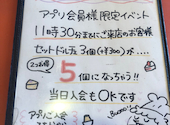 アプリ会員様限定イベント
11時30分までにご来店のお客様
セットドルチェ3個(¥300)が....
2つお得
5個になっちゃう!!
当日入会もOKです
アプリご入会